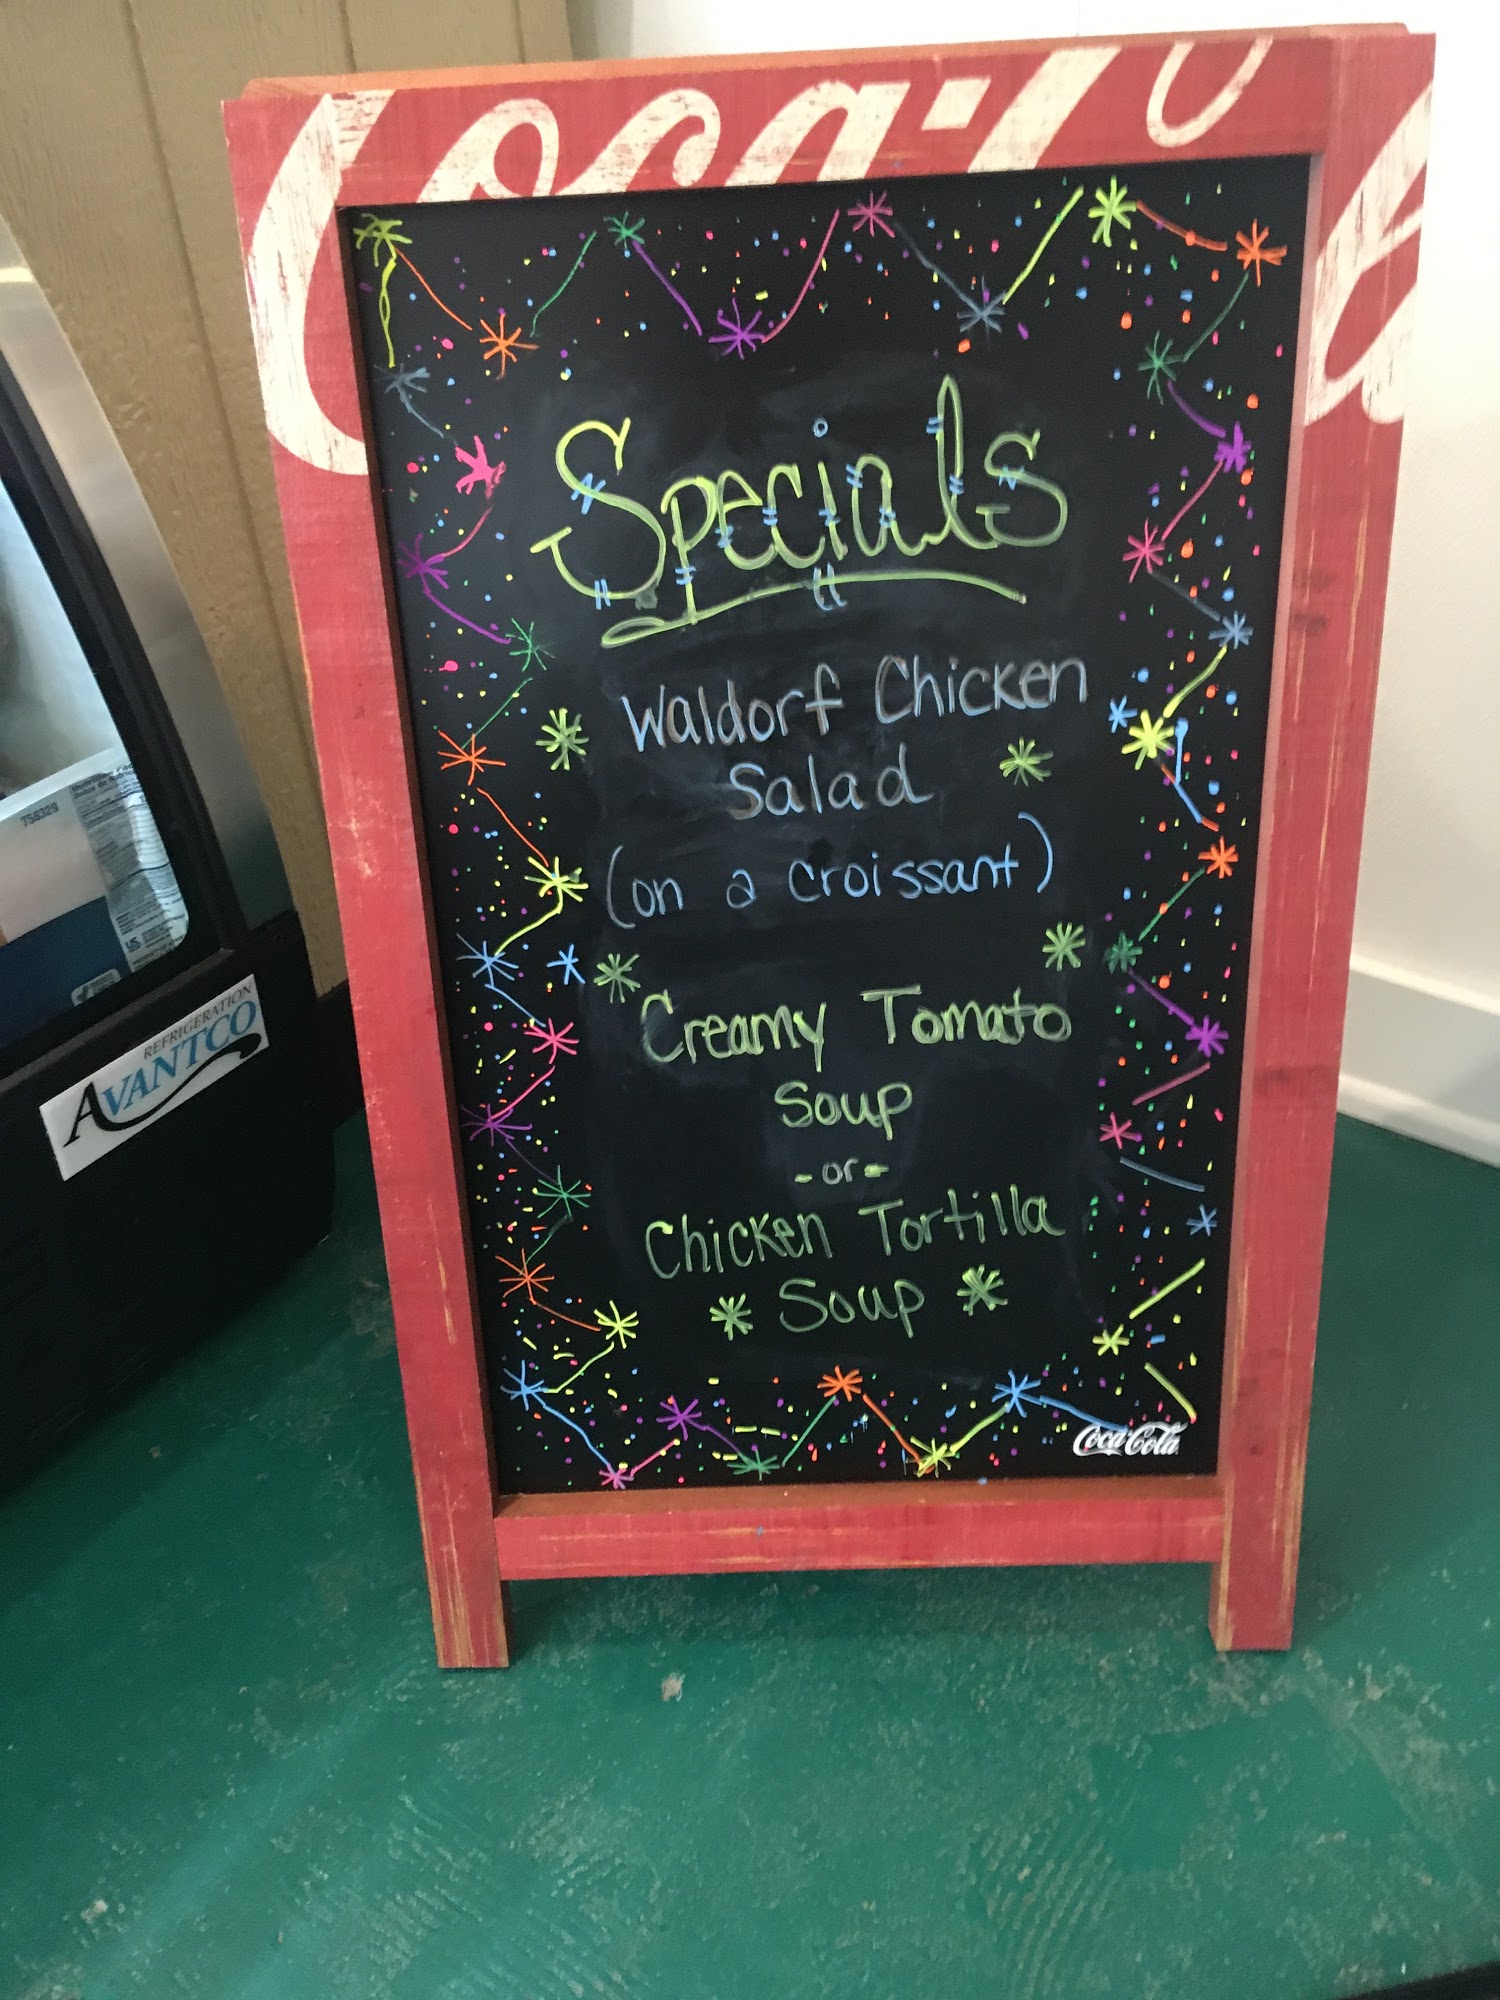 Coca-Co
Specials
Waldorf Chicken
Salad
(on a croissant)
Creamy Tomato
Soup
-or-
Chicken Tortilla
Soup
Coca-Cola
758329
REFRIGERATION
AVANTCO